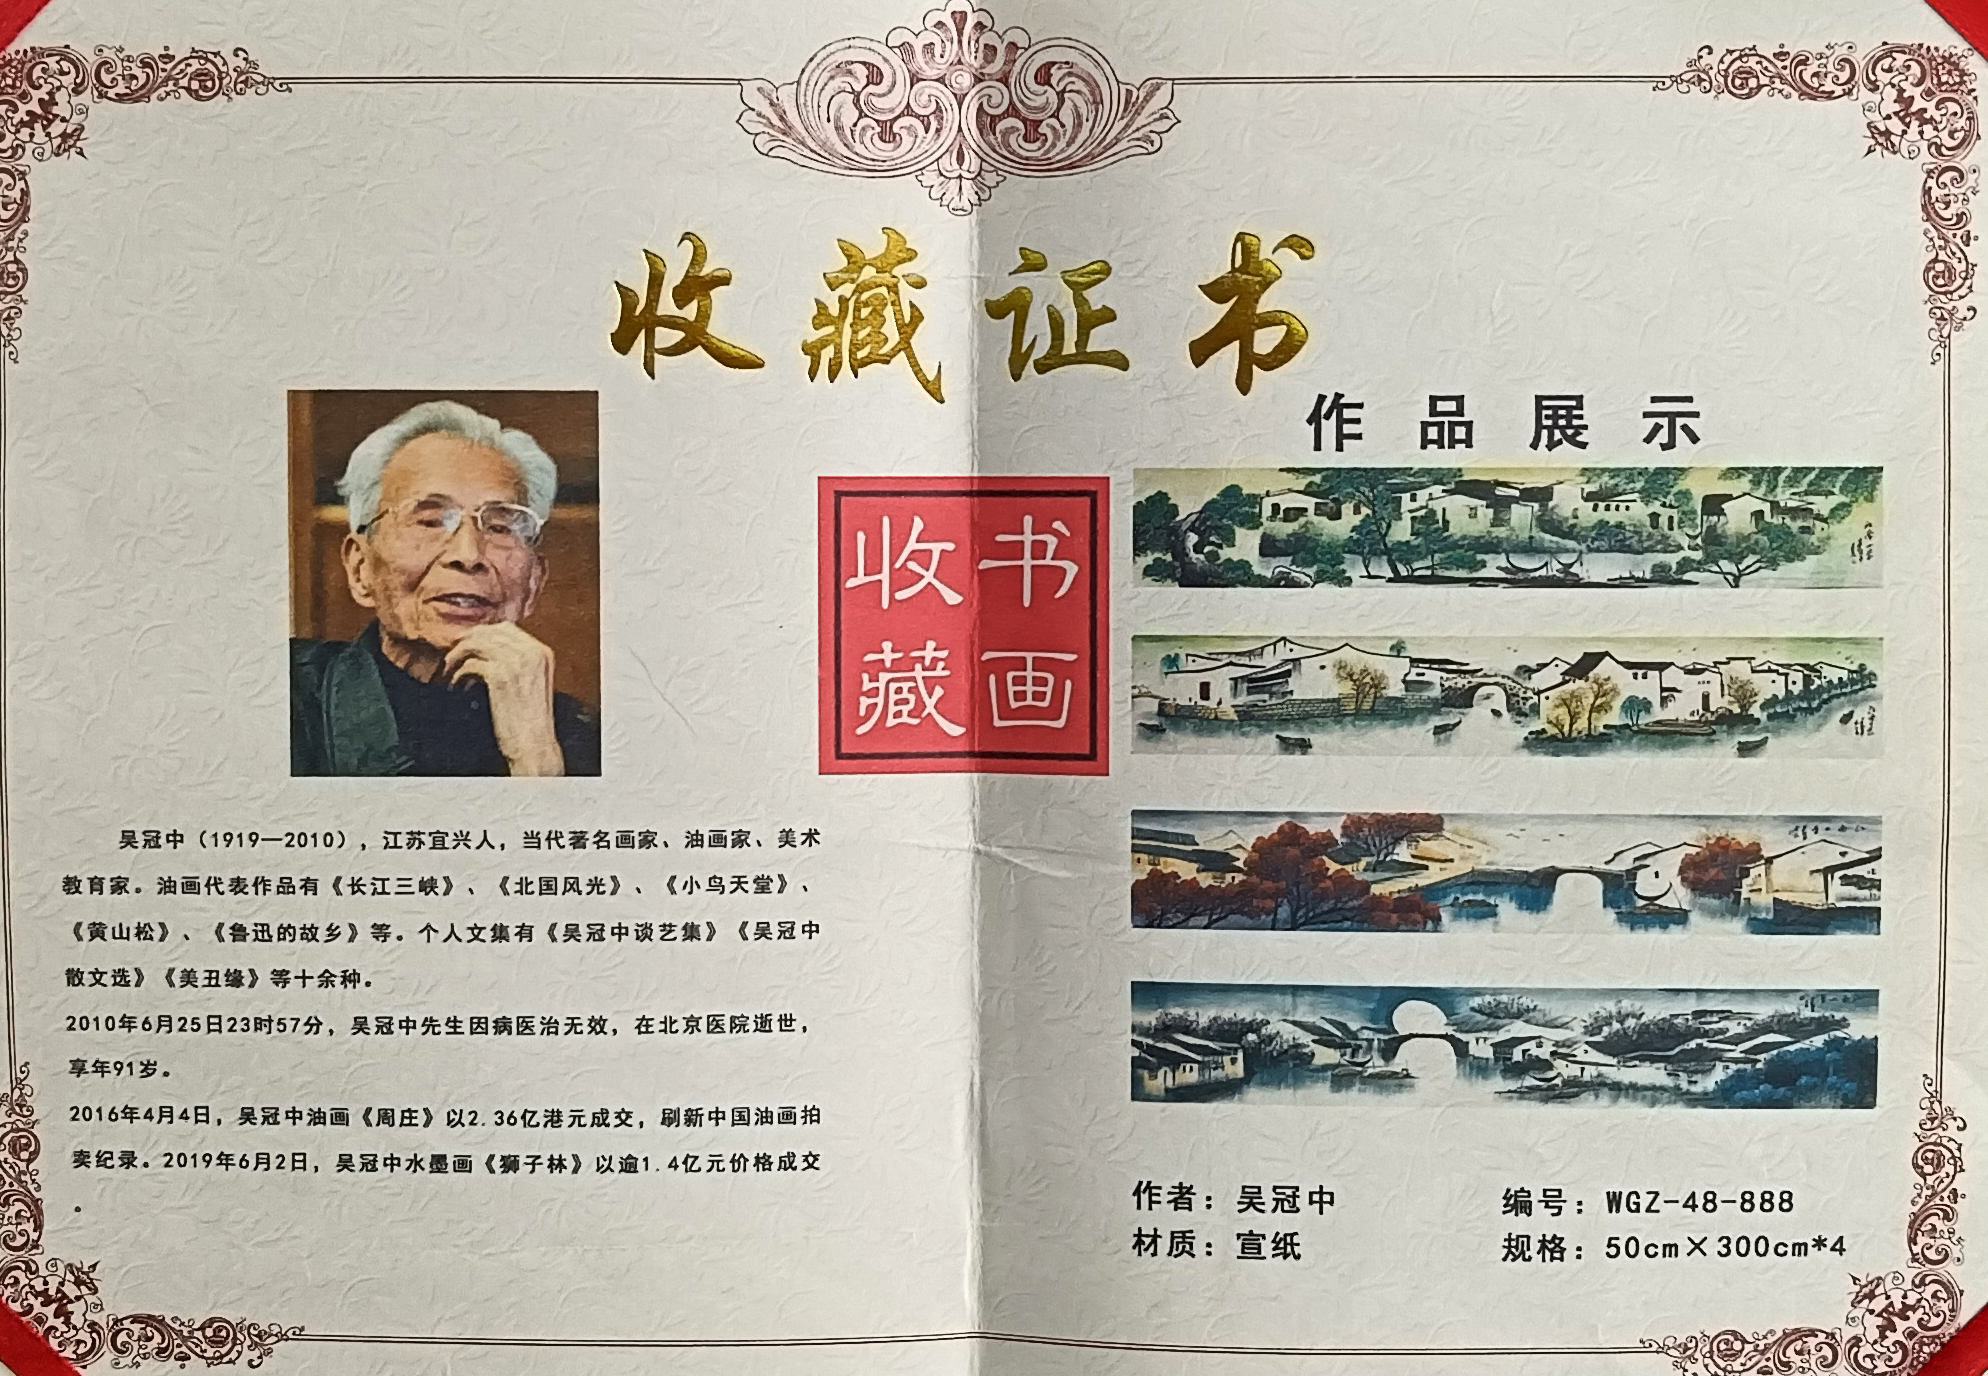 收藏证书
作品展示
收 书
藏 画
吴冠中（1919—2010），江苏宜兴人，当代著名画家、油画家、美术
教育家。油画代表作品有《长江三峡》、《北国风光》、《小鸟天堂》、
《黄山松》、《鲁迅的故乡》等。个人文集有《吴冠中谈艺集》《吴冠中
散文选》《美丑缘》等十余种。
2010年6月25日23时57分，吴冠中先生因病医治无效，在北京医院逝世，
享年91岁。
2016年4月4日，吴冠中油画《周庄》以2.36亿港元成交，刷新中国油画拍
卖纪录。2019年6月2日，吴冠中水墨画《狮子林》以逾1.4亿元价格成交
。
作者：吴冠中
编号：WGZ-48-888
材质：宣纸
规格：50cm×300cm*4